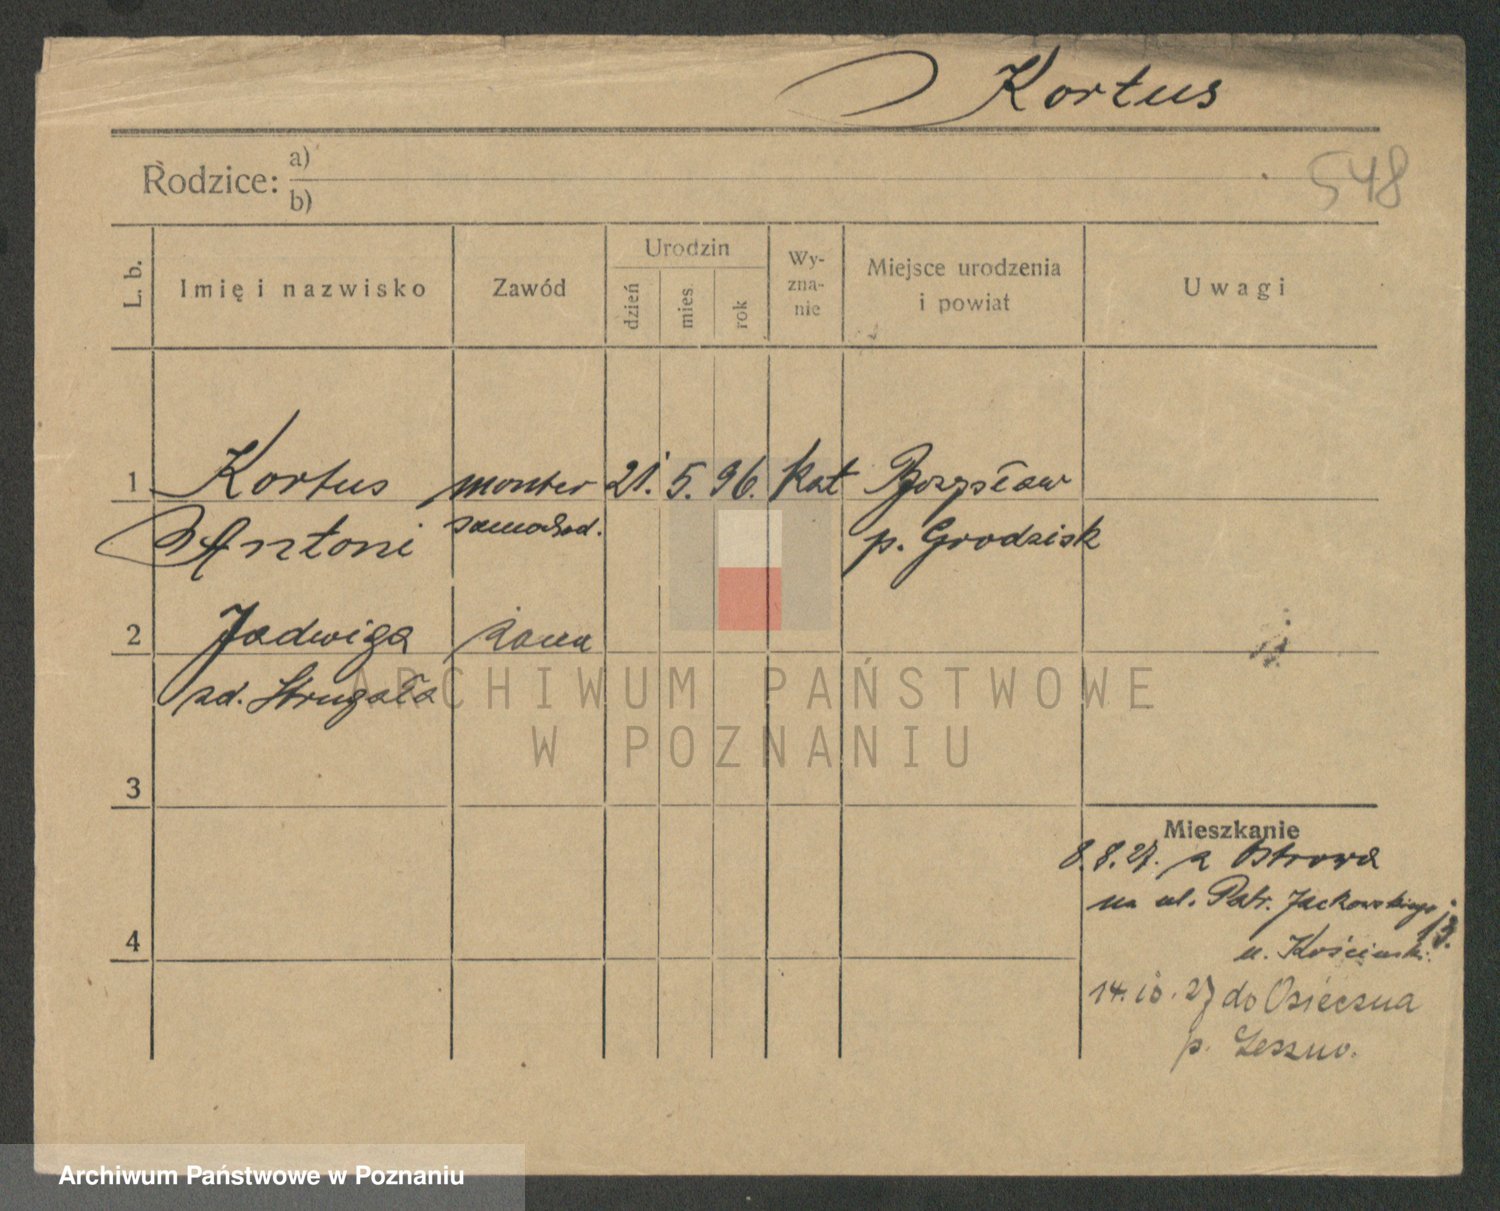 Kortus
548
Rodzice: a)
b)
L. b.
Imię i nazwisko
Zawód
Urodzin
dzień
mies.
rok
Wy-
zna-
nie
Miejsce urodzenia
i powiat
Uwagi
1 Kortus monter 21. 5. 96. kat
Antoni samochod. p. Grodzisk
2 Jadwiga żona
zd. Strugała
3
4
Mieszkanie
8.8.27. z Ostrowa
na ul. Patr. Jackowskiego
u.
14.10.27 do Osieczna
p. Leszno.
ARCHIWUM PAŃSTWOWE
W POZNANIU
Archiwum Państwowe w Poznaniu